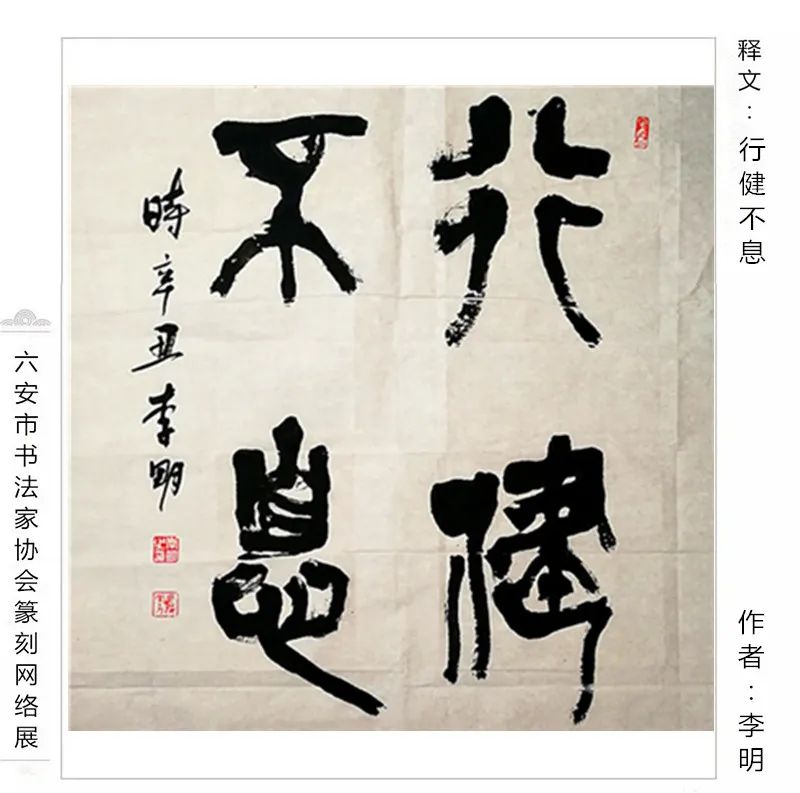 释文：行健不息
行健
不息
時辛丑李明
作者：李明
六安市书法家协会篆刻网络展